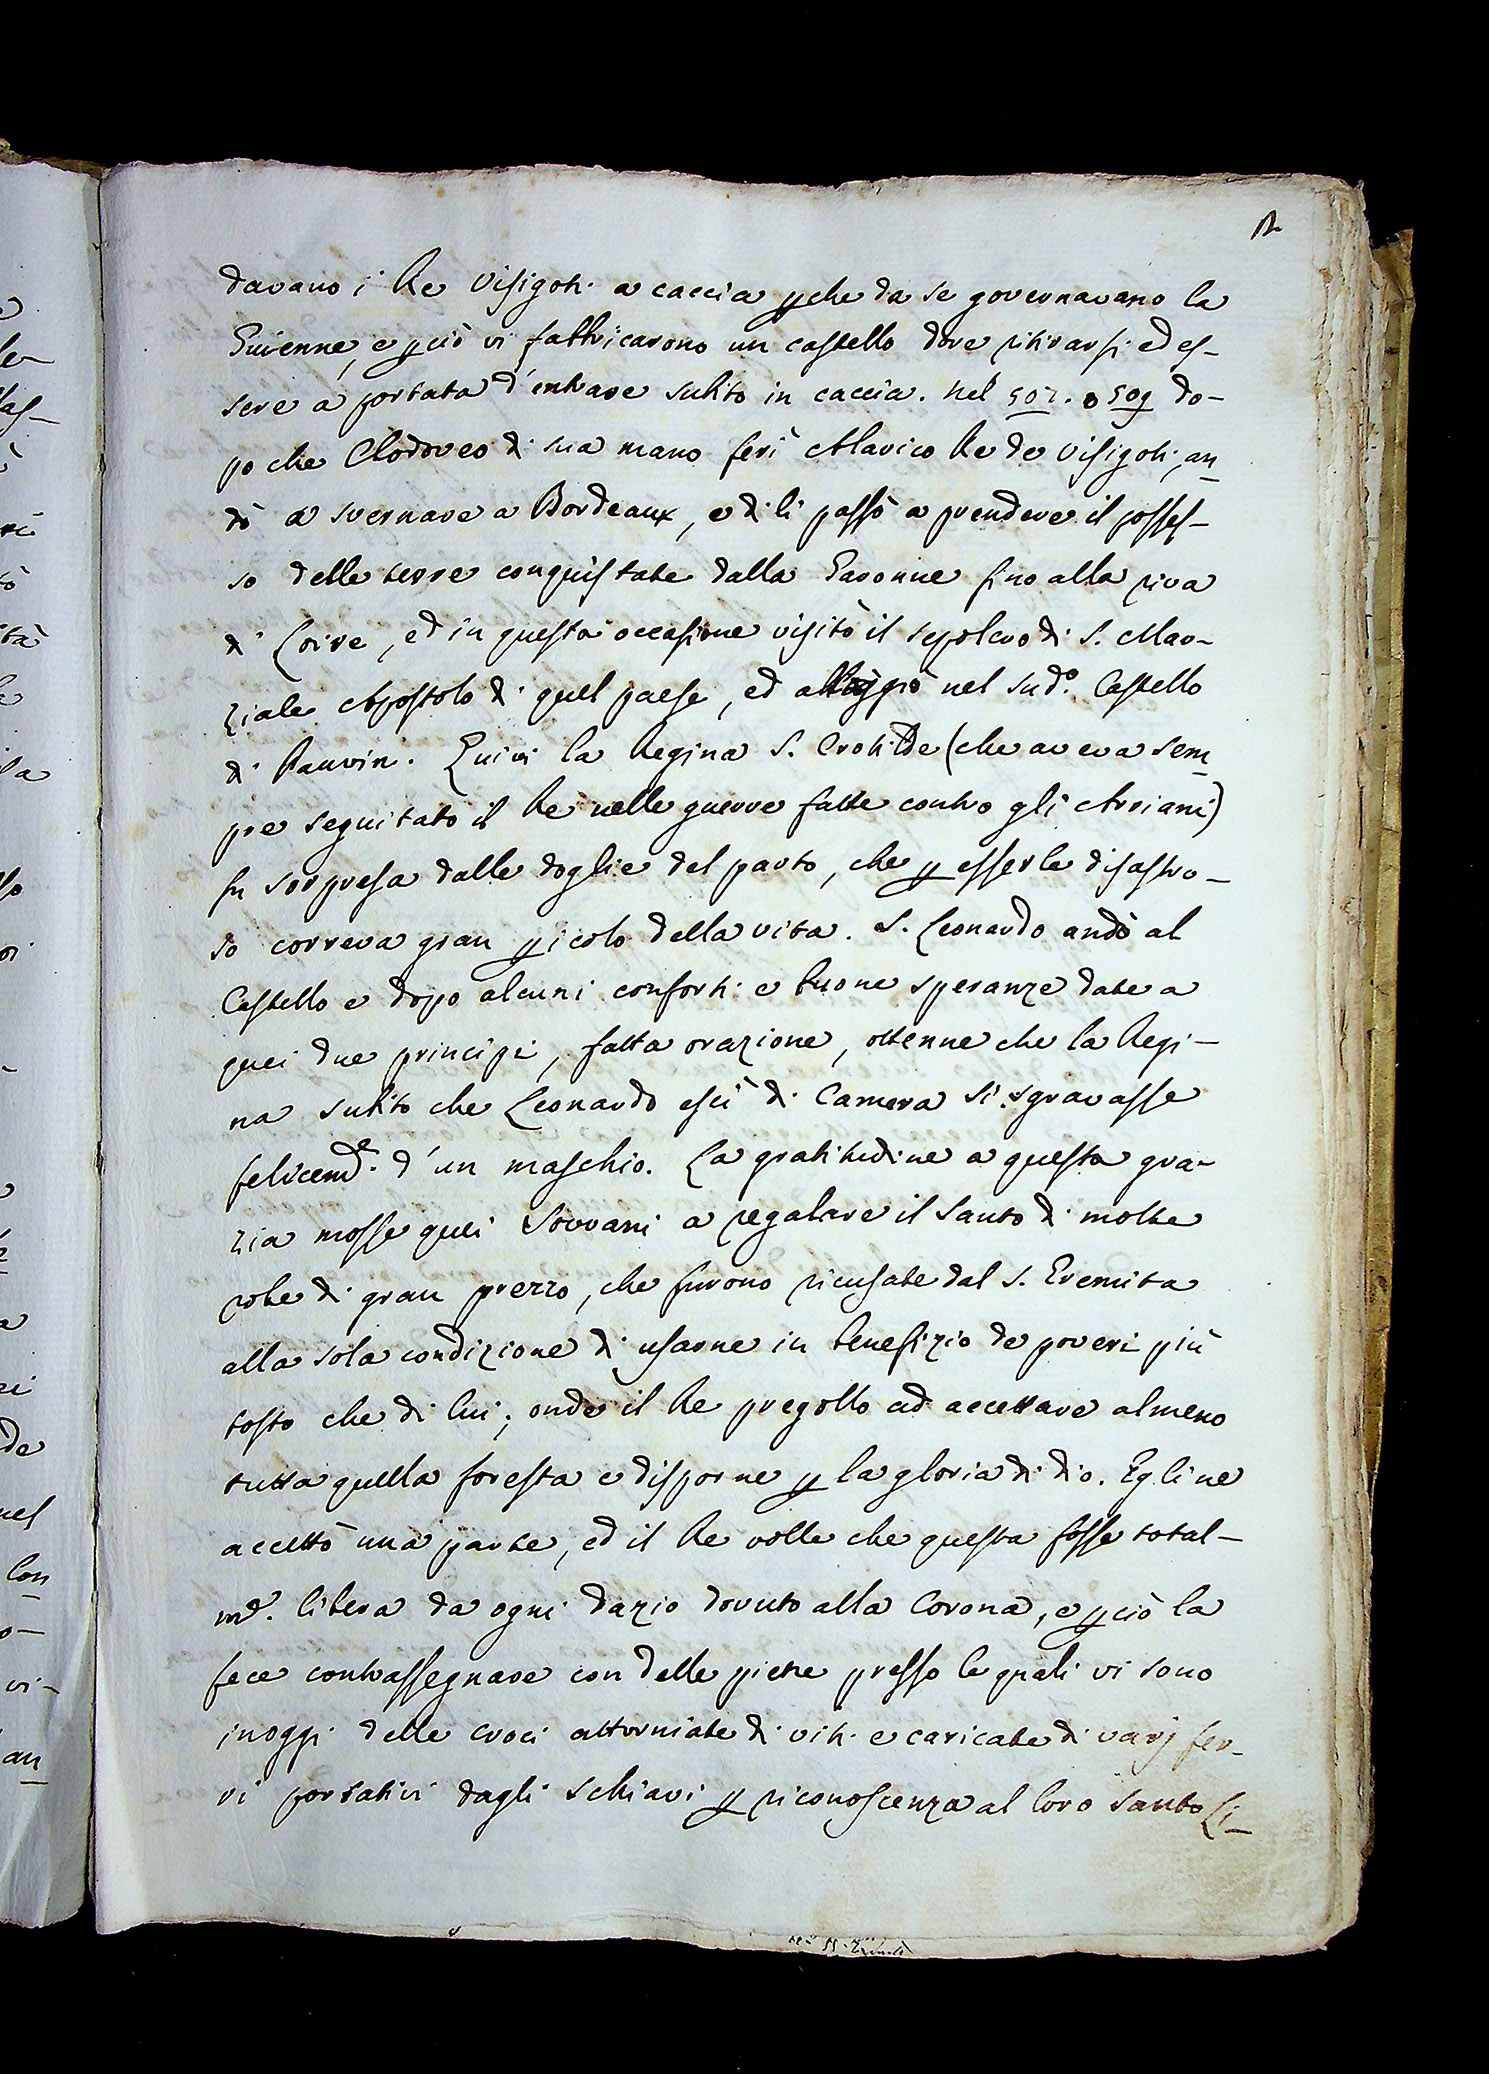 davano i Re Visigoti a caccia pche da se governavano la
Guienne, e pciò vi fabbricarono un castello dove ritirarsi ed es-
sere a portata d'entrare subito in caccia. Nel 507. o 509 do-
po che Clodoveo di sua mano ferì Alarico Re de Visigoti, an
dò a svernare a Bordeaux, e di lì passò a prendere il posses-
so delle terre conquistate dalla Garonne fino alla riva
di Loire, ed in questa occasione visitò il sepolcro di S. Mar-
ziale Apostolo di quel paese, ed alloggiò nel sud.o Castello
di Pauvin. Quivi la Regina S. Crotilde (che aveva sem
pre seguitato il Re nelle guerre fatte contro gli Arriani)
fu sorpresa dalle doglie del parto, che p esserle disastro-
so correva gran picolo della vita. S. Leonardo andò al
Castello e dopo alcuni conforti e buone speranze date a
quei due principi, fatta orazione, ottenne che la Regi-
na subito che Leonardo escì di Camera si sgravasse
felicem.e d'un maschio. La gratitudine a questa gra-
zia mosse quei Sovrani a regalare il Santo di molte
robe di gran prezzo, che furono ricusate dal S. Eremita
alla sola condizione di usarne in benefizio de poveri più
tosto che di lui; onde il Re pregollo ad accettare almeno
tutta quella foresta e disporne p la gloria di dio. Egli ne
accettò una parte, ed il Re volle che questa fosse total-
m.e libera da ogni dazio dovuto alla Corona, e pciò la
fece contrassegnare con delle pietre presso le quali vi sono
inoggi delle croci attorniate di viti e caricate di varj fer-
ri portativi dagli schiavi p riconoscenza al loro Santo Li-